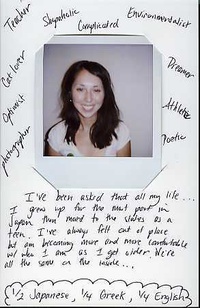 Teacher
Shopaholic
Complicated
Environmentalist
Cat lover
Dreamer
Optimist
Athlete
photographer
Poetic
I've been asked that all my life...
I grew up for the most part in
Japan then moved to the states as a
teen. I've always felt out of place
but am becoming more and more comfortable
w/ who I am as I get older. We're
all the same on the inside...
1/2 Japanese, 1/4 Greek, 1/4 English